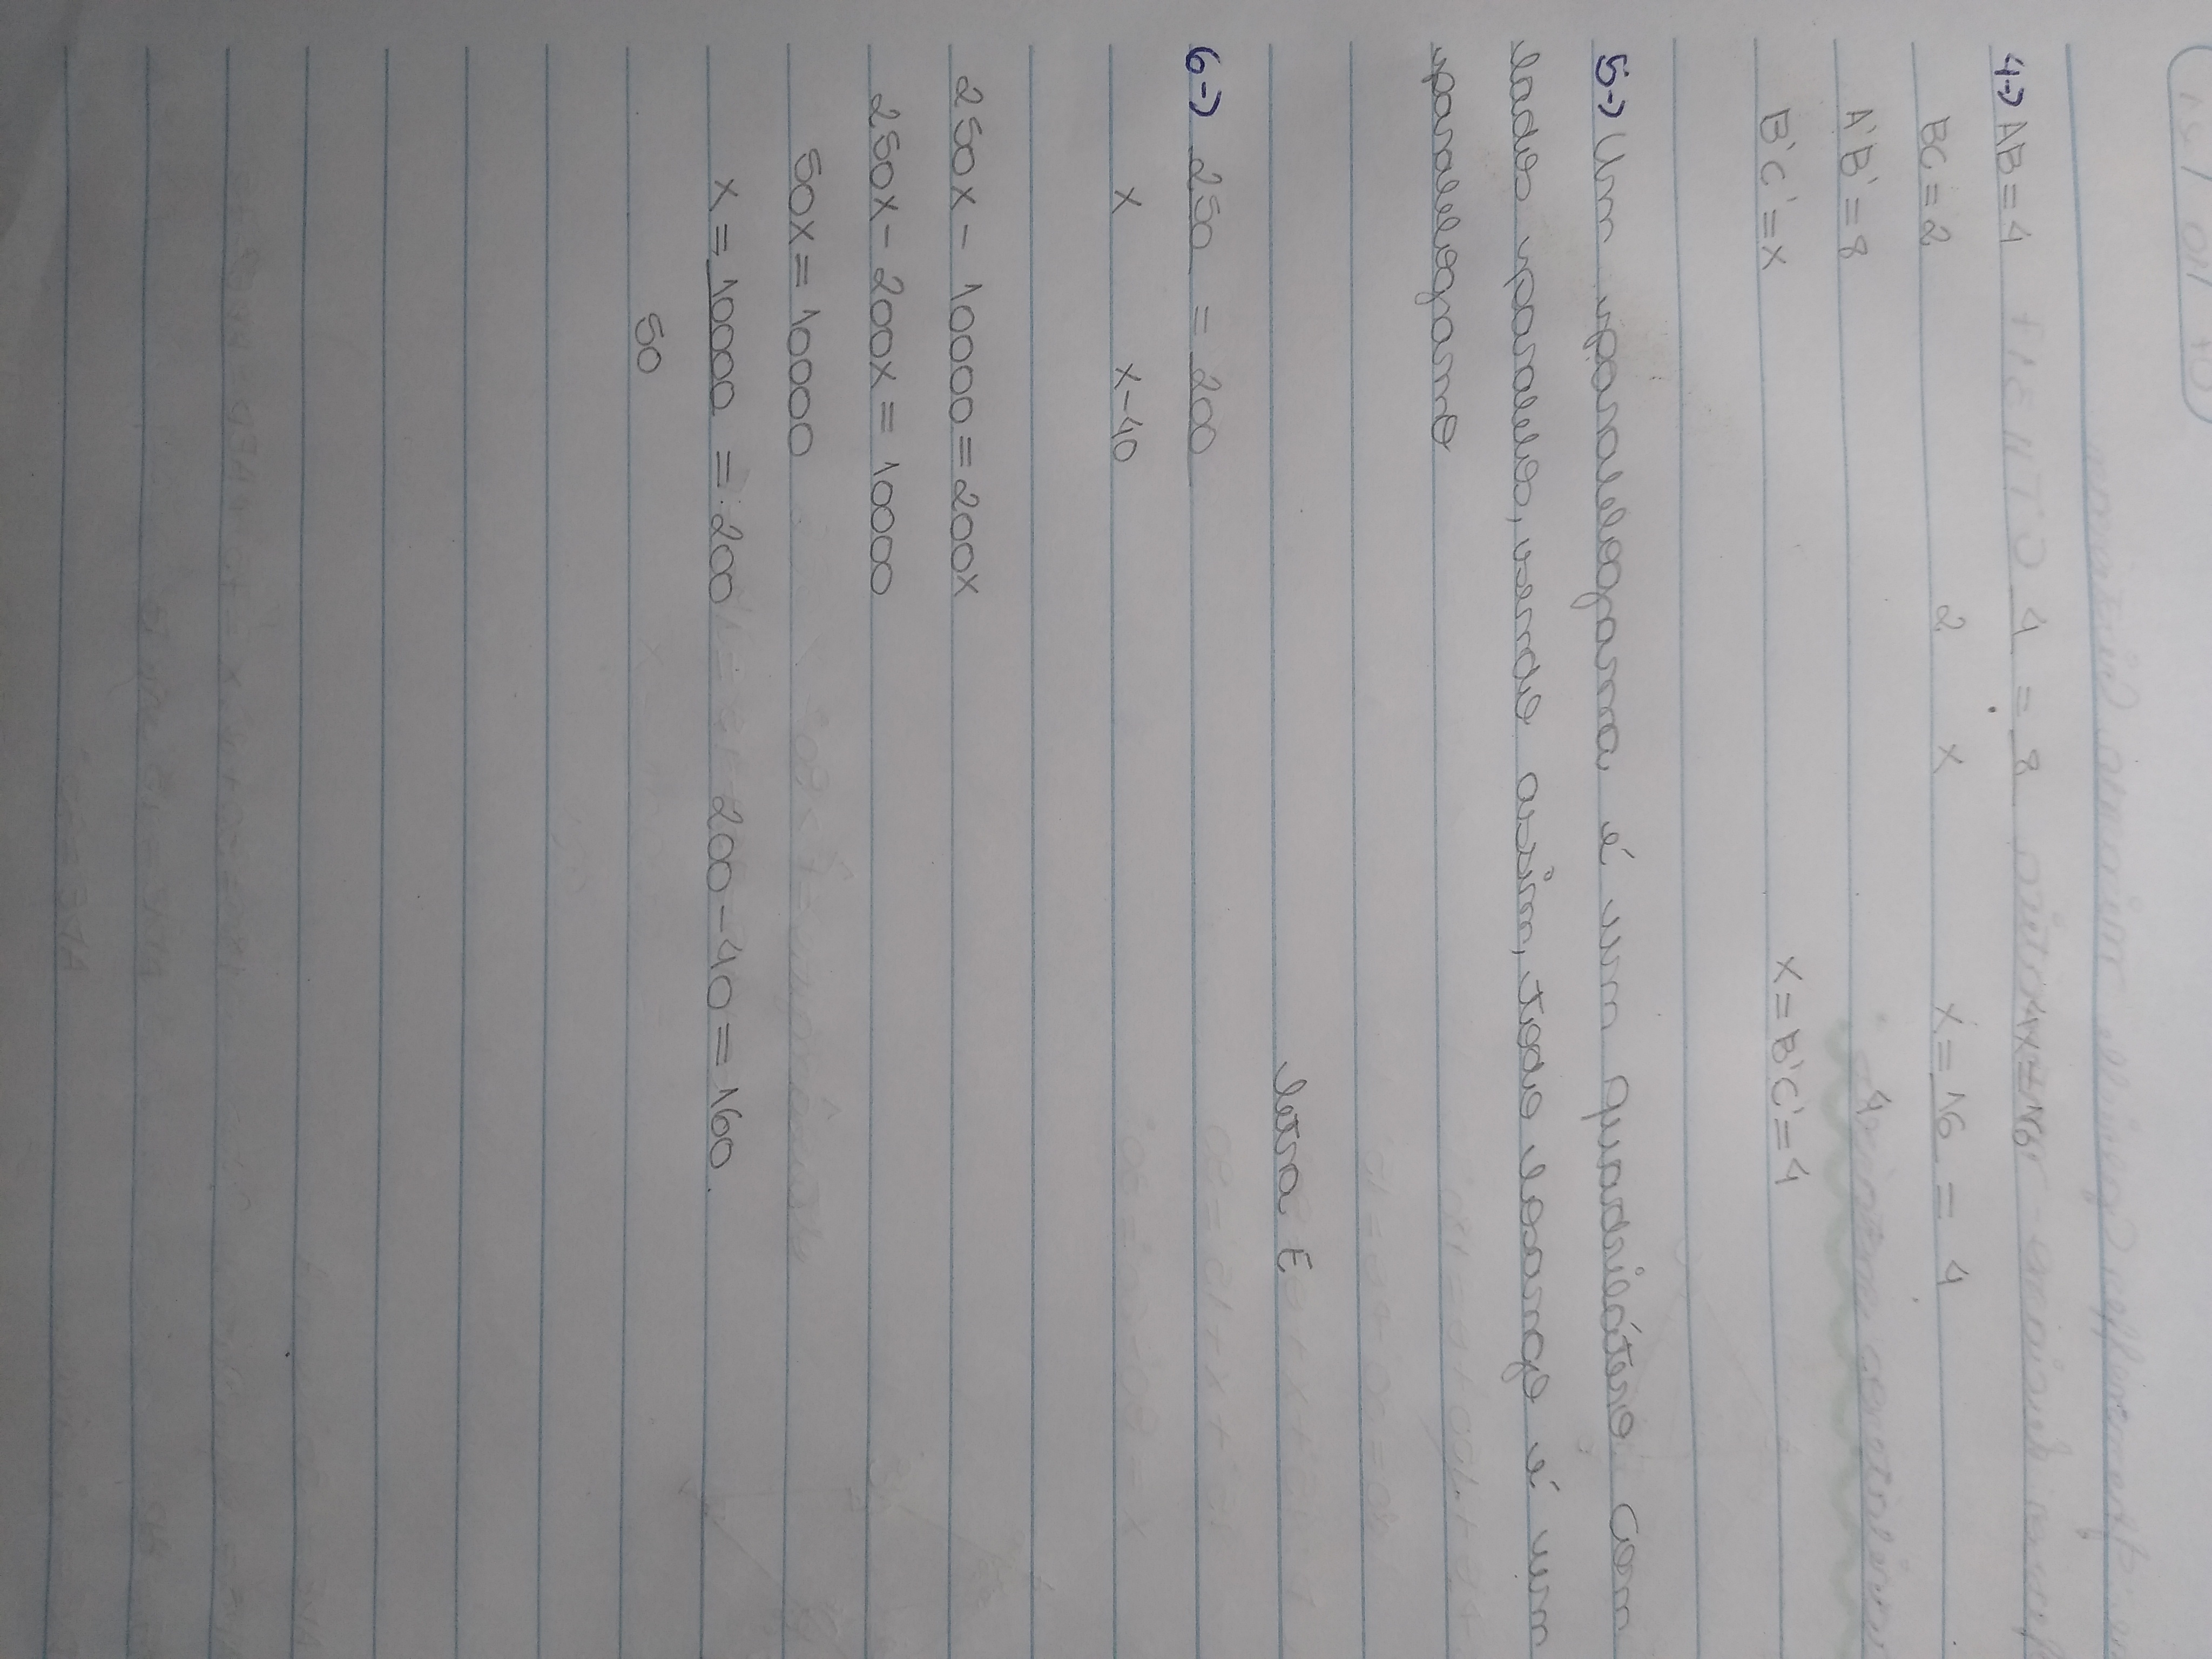 4-> AB = 4 4 = 8 4x = 16
BC = 2 2 x x = 16 = 4
A'B' = 8 4
B'C' = x x = B'C' = 4
5-> Um paralelograma é um quadrilátero com
lados paralelos, sendo assim, todo losango é um
paralelogramo
letra E
6-> 250 = 200
x x-40
250x - 10000 = 200x
250x - 200x = 10000
50x = 10000
x = 10000 = 200 200 - 40 = 160.
50